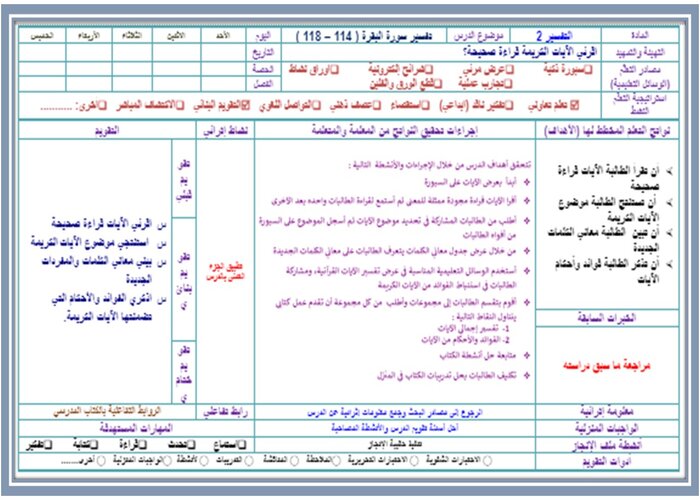 المادة	التفسير 2	موضوع الدرس	تفسير سورة البقرة ( 114 – 118 )	اليوم	الأحد	الاثنين	الثلاثاء	الأربعاء	الخميس
التهيئة والتمهيد	اقرئي الآيات الكريمة قراءة صحيحة؟	التاريخ
مصادر التعلم (الوسائل التعليمية)	سبورة ذكية	عرض مرئي	شرائح إلكترونية	أوراق نشاط	الحصة
تجارب عملية	قطع الورق والفلين	الفصل
استراتيجية التعلم النشط	تعلم تعاوني	تفكير ناقد (إبداعي)	استقصاء	عصف ذهني	التواصل اللغوي	التقويم البنائي	الاكتشاف المباشر	أخرى: ...........
نواتج التعلم المخطط لها (الأهداف)	إجراءات تحقيق النواتج من المعلمة والمتعلمة	نشاط إثرائي	التقويم
أن تقرأ الطالبة الآيات قراءة صحيحة
أن تستنتج الطالبة موضوع الآيات الكريمة
أن تبين الطالبة معاني الكلمات الجديدة
أن تذكر الطالبة فوائد وأحكام الآيات
الخبرات السابقة
مراجعة ما سبق دراسته
تتحقق أهداف الدرس من خلال الإجراءات والأنشطة التالية :
أبدأ بعرض الآيات على السبورة
أقرأ الآيات قراءة مجودة ممثلة للمعنى ثم أستمع لقراءة الطالبات واحدة بعد الأخرى
أطلب من الطالبات المشاركة في تحديد موضوع الآيات ثم أسجل الموضوع على السبورة
من أفواه الطالبات
من خلال عرض جدول معاني الكلمات يتعرف الطالبات على معاني الكلمات الجديدة
أستخدم الوسائل التعليمية المناسبة في عرض تفسير الآيات القرآنية، ومشاركة
الطالبات في استنباط الفوائد من الآيات الكريمة
أقوم بتقسيم الطالبات إلى مجموعات وأطلب من كل مجموعة أن تقدم عمل كتابي
يتناول النقاط التالية :
1- تفسير إجمالي الآيات
2- الفوائد والأحكام من الآيات
متابعة حل أنشطة الكتاب
تكليف الطالبات بحل تدريبات الكتاب في المنزل
تطبيق الجزء
العملي بالدرس
تقويم قبلي
تقويم بنائي
تقويم ختامي
اقرئي الآيات قراءة صحيحة
استنتجي موضوع الآيات الكريمة
بيني معاني الكلمات والمفردات الجديدة
اذكري الفوائد والأحكام التي تضمنتها الآيات الكريمة.
معلومة إثرائية	الرجوع إلى مصادر البحث وجمع معلومات إثرائية عن الدرس	رابط تفاعلي	الروابط التفاعلية بالكتاب المدرسي
الواجبات المنزلية	أحل أسئلة تقويم الدرس والأنشطة المصاحبة	المهارات المستهدفة
أنشطة ملف الإنجاز	تغذية حقيبة الإنجاز	استماع	تحدث	قراءة	كتابة	تفكير
أدوات التقويم	الاختبارات الشفوية	الاختبارات التحريرية	الملاحظة	المناقشة	التدريبات	الأنشطة	الواجبات المنزلية	أخرى........